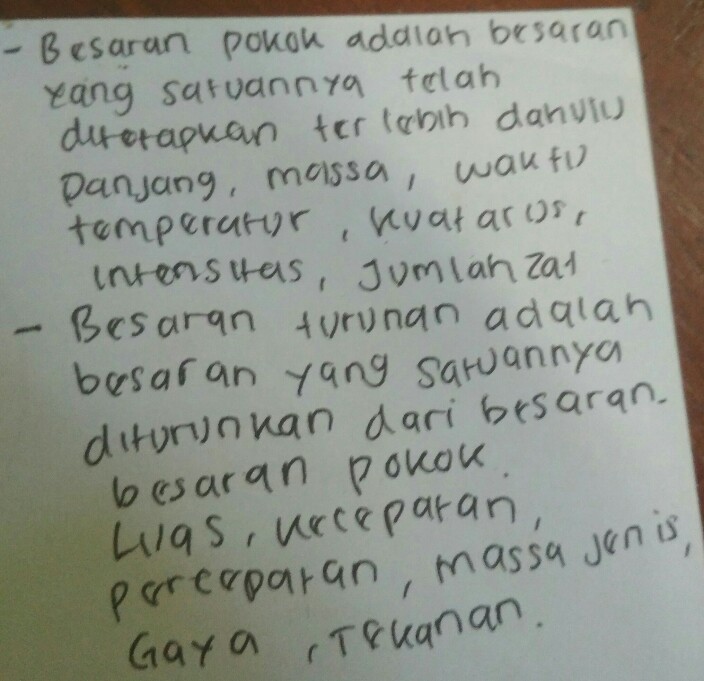 - Besaran pokok adalah besaran
yang satuannya telah
ditetapkan terlebih dahulu
Panjang, massa, waktu
temperatur, kuat arus,
intensitas, Jumlah zat
- Besaran turunan adalah
besaran yang satuannya
diturunkan dari besaran-
besaran pokok.
Luas, kecepatan,
percepatan, massa jenis,
Gaya, Tekanan.